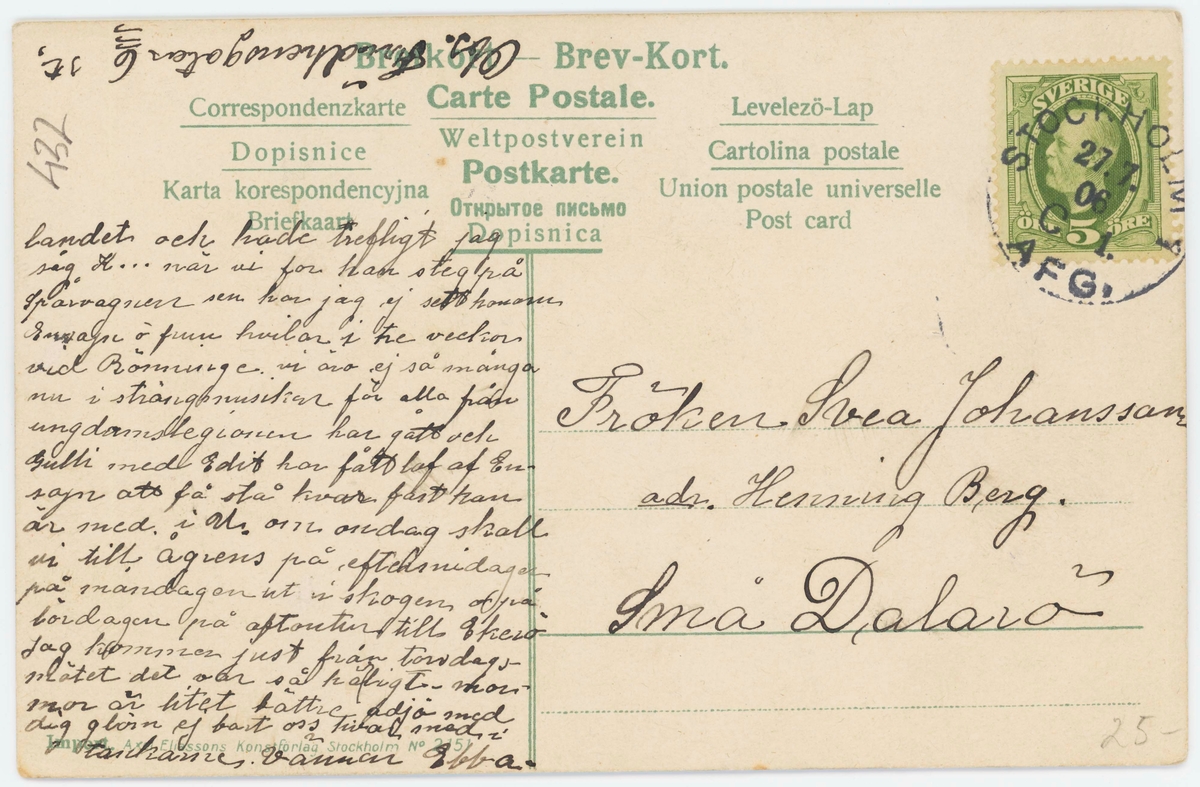 Obs. Fridhemsgatan 6
st,
432
Brefkort — Brev-Kort.
Correspondenzkarte
Carte Postale.
Levelezö-Lap
Dopisnice
Weltpostverein
Cartolina postale
Karta korespondencyjna
Postkarte.
Union postale universelle
Briefkaart
Открытое письмо
Post card
Dopisnica
SVERIGE
5
ÖRE
STOCKHOLM 1
27.7.
06
C 1.
AFG.
landet och hade trefligt jag
såg K... när vi for han steg på
spårvagnen sen har jag ej sett honom
Ensajn ö frun hvilar i tre veckor
vid Rönninge. vi äro ej så många
nu i strängmusiken för alla från
ungdomslegionen har gått och
Gulli med Edit har fått lof af En-
sajn att få stå kvar fast han
är med. i U. om ondag skall
vi till Ågrens på eftermidagen
på måndagen ut i skogen o på
lördagen på aftontur till Ekerö
jag kommer just från torsdags-
mötet det var så härligt - mor
mor är litet bättre adjö med
dig glöm ej bort oss två med i
vännen Ebba.
Fröken Svea Johansson
adr. Henning Berg.
Små Dalarö
Import. Axel Eliassons Konstförlag Stockholm No 2151
25-